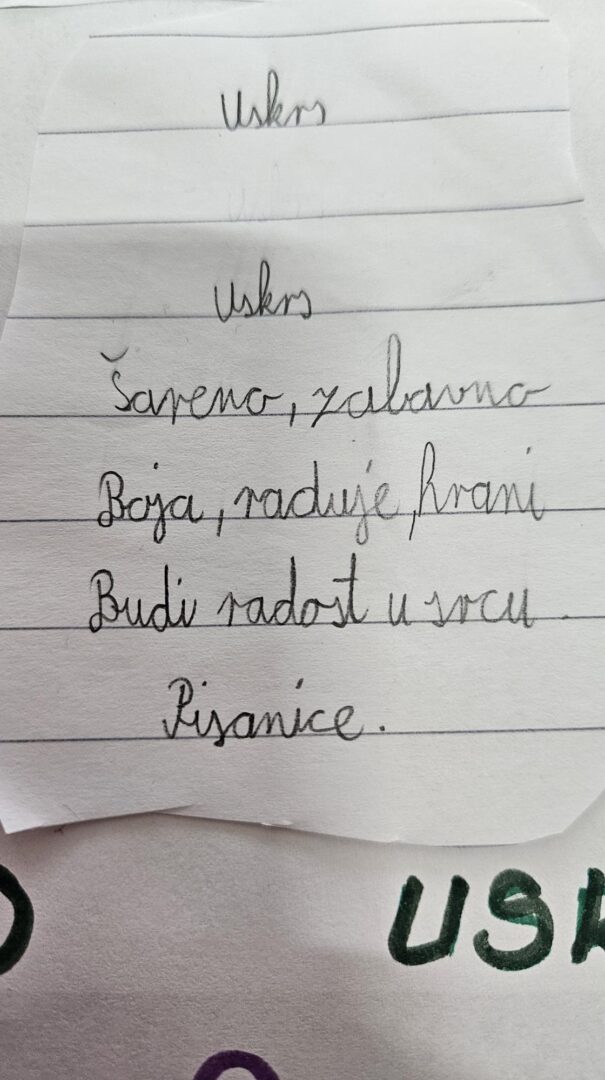 Uskrs
Uskrs
Šareno, zabavno
Boja, raduje, hrani
Budi radost u srcu.
Pisanice.
USK